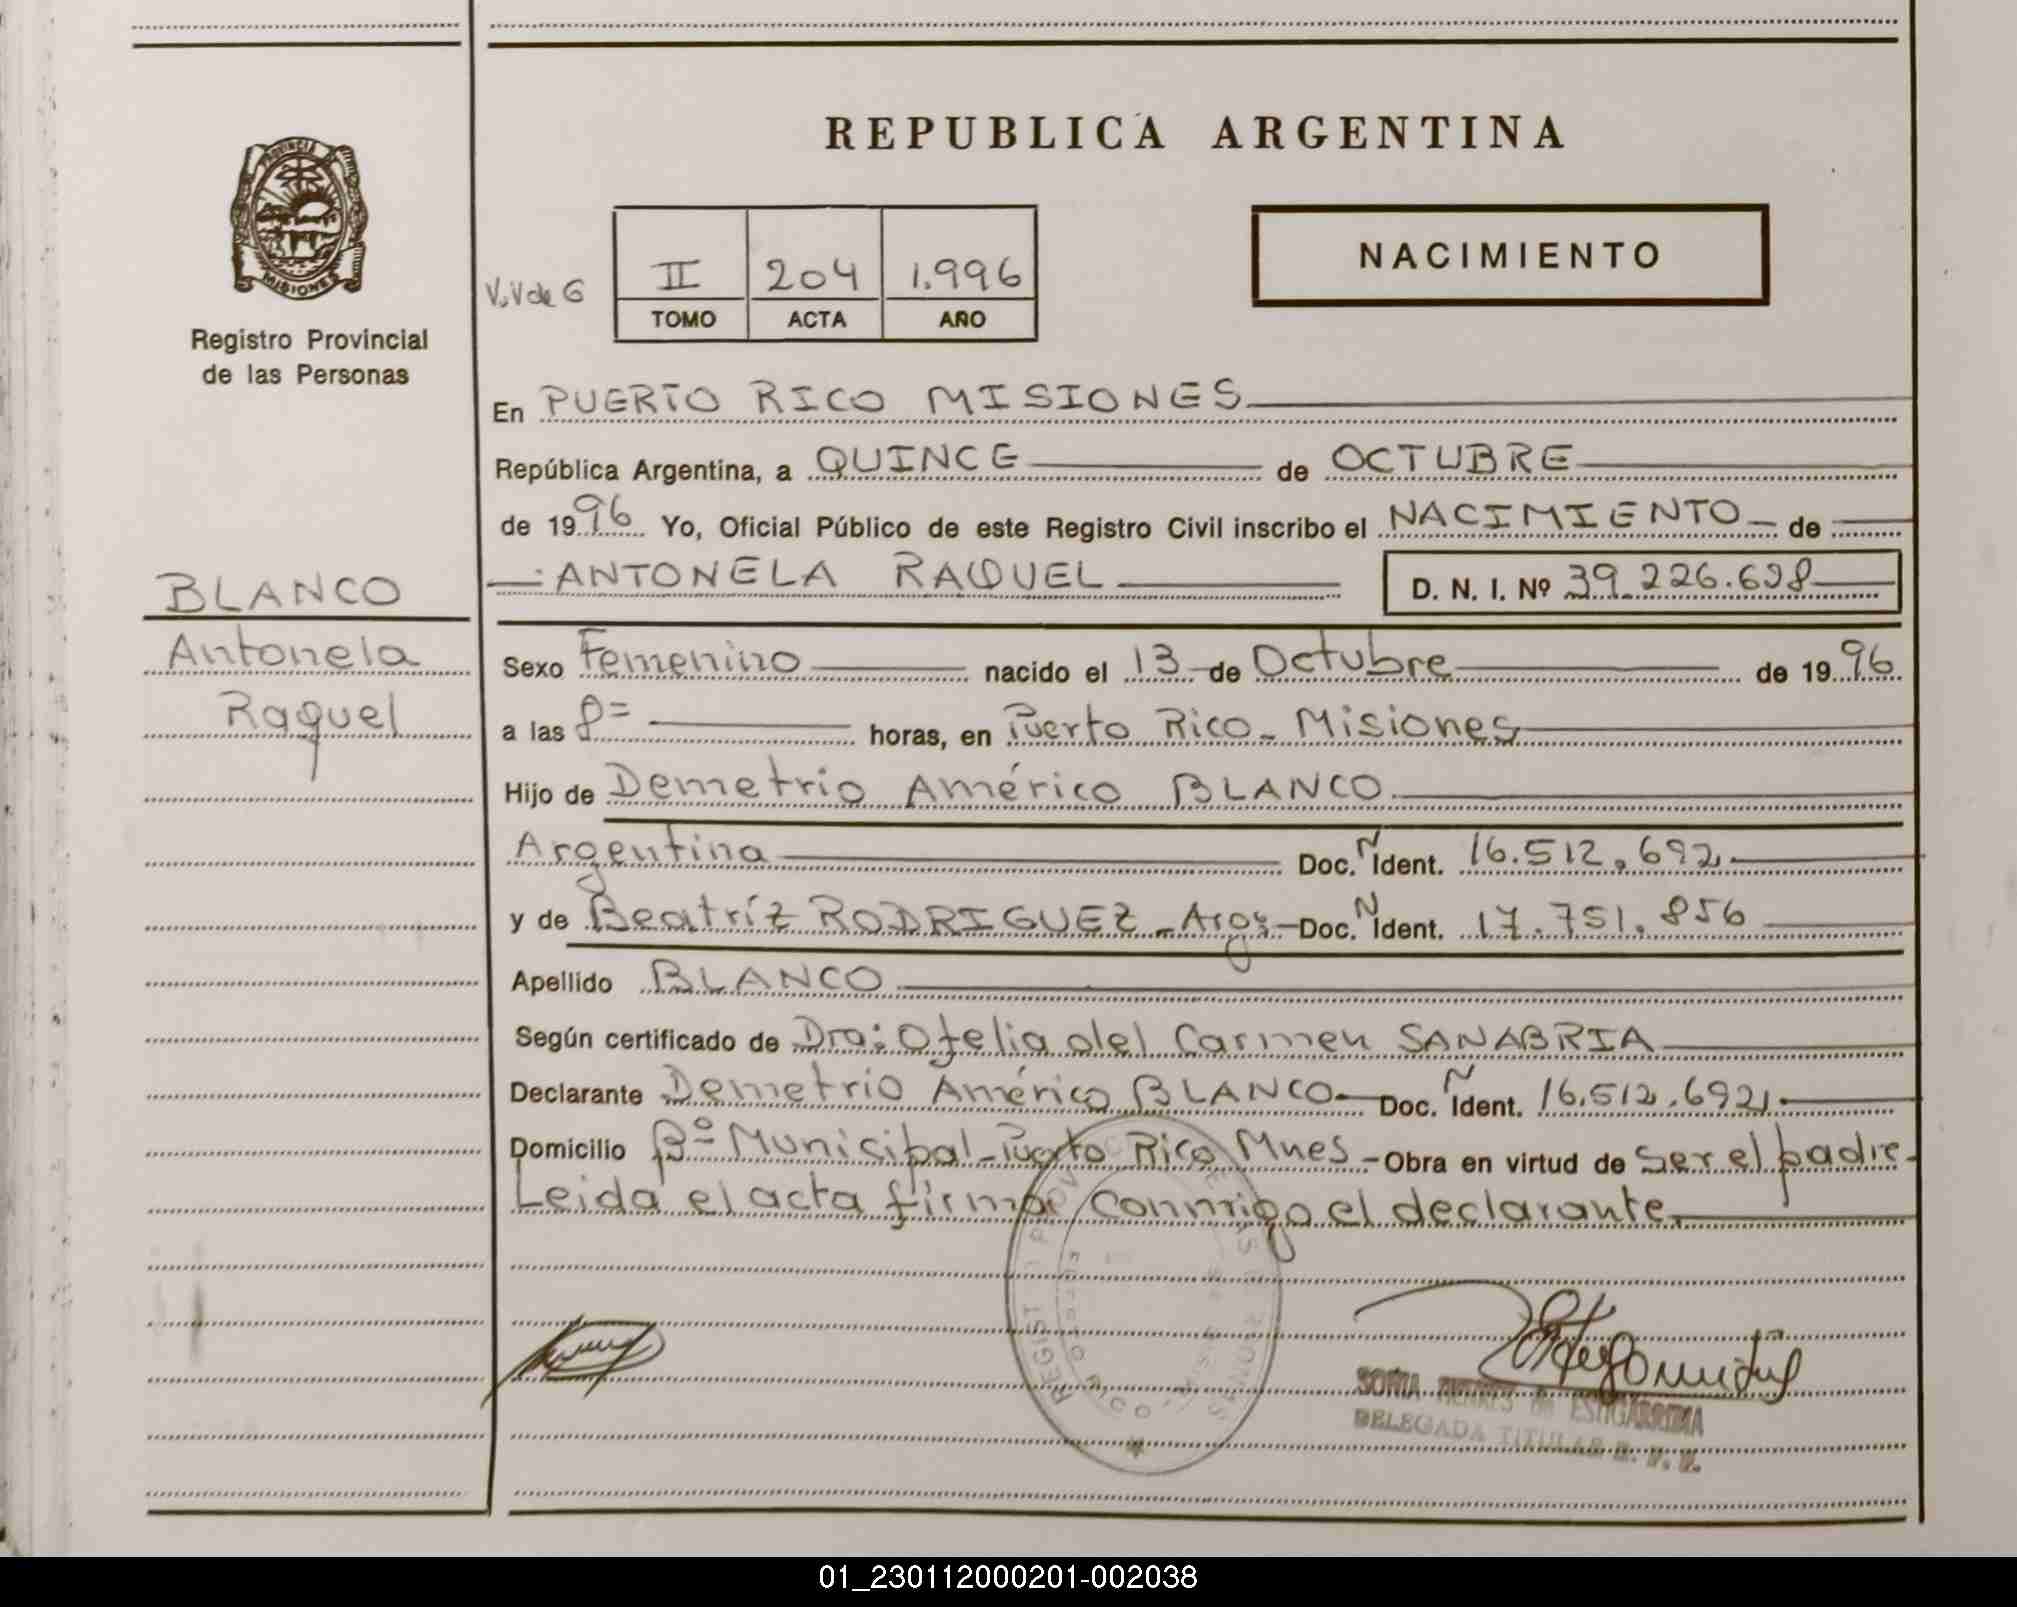 REPUBLICA ARGENTINA
PROVINCIA DE
MISIONES
Registro Provincial
de las Personas
V.V de G
II 204 1.996
TOMO ACTA AÑO
NACIMIENTO
En PUERTO RICO MISIONES
República Argentina, a QUINCE de OCTUBRE
de 1996 Yo, Oficial Público de este Registro Civil inscribo el NACIMIENTO de
ANTONELA RAQUEL D. N. I. Nº 39.226.698
BLANCO
Antonela
Raquel
Sexo Femenino nacido el 13 de Octubre de 1996
a las 8= horas, en Puerto Rico - Misiones
Hijo de Demetrio Américo BLANCO
Argentina Doc. N Ident. 16.512.692
y de Beatríz RODRIGUEZ - Arg: - Doc. N Ident. 17.751.856
Apellido BLANCO
Según certificado de Dra: Ofelia del Carmen SANABRIA
Declarante Demetrio Américo BLANCO - Doc. N Ident. 16.512.692
Domicilio Bº Municipal - Puerto Rico Mnes - Obra en virtud de ser el padre -
Leida el acta firma conmigo el declarante.
DELEGADA TITULAR
01_230112000201-002038